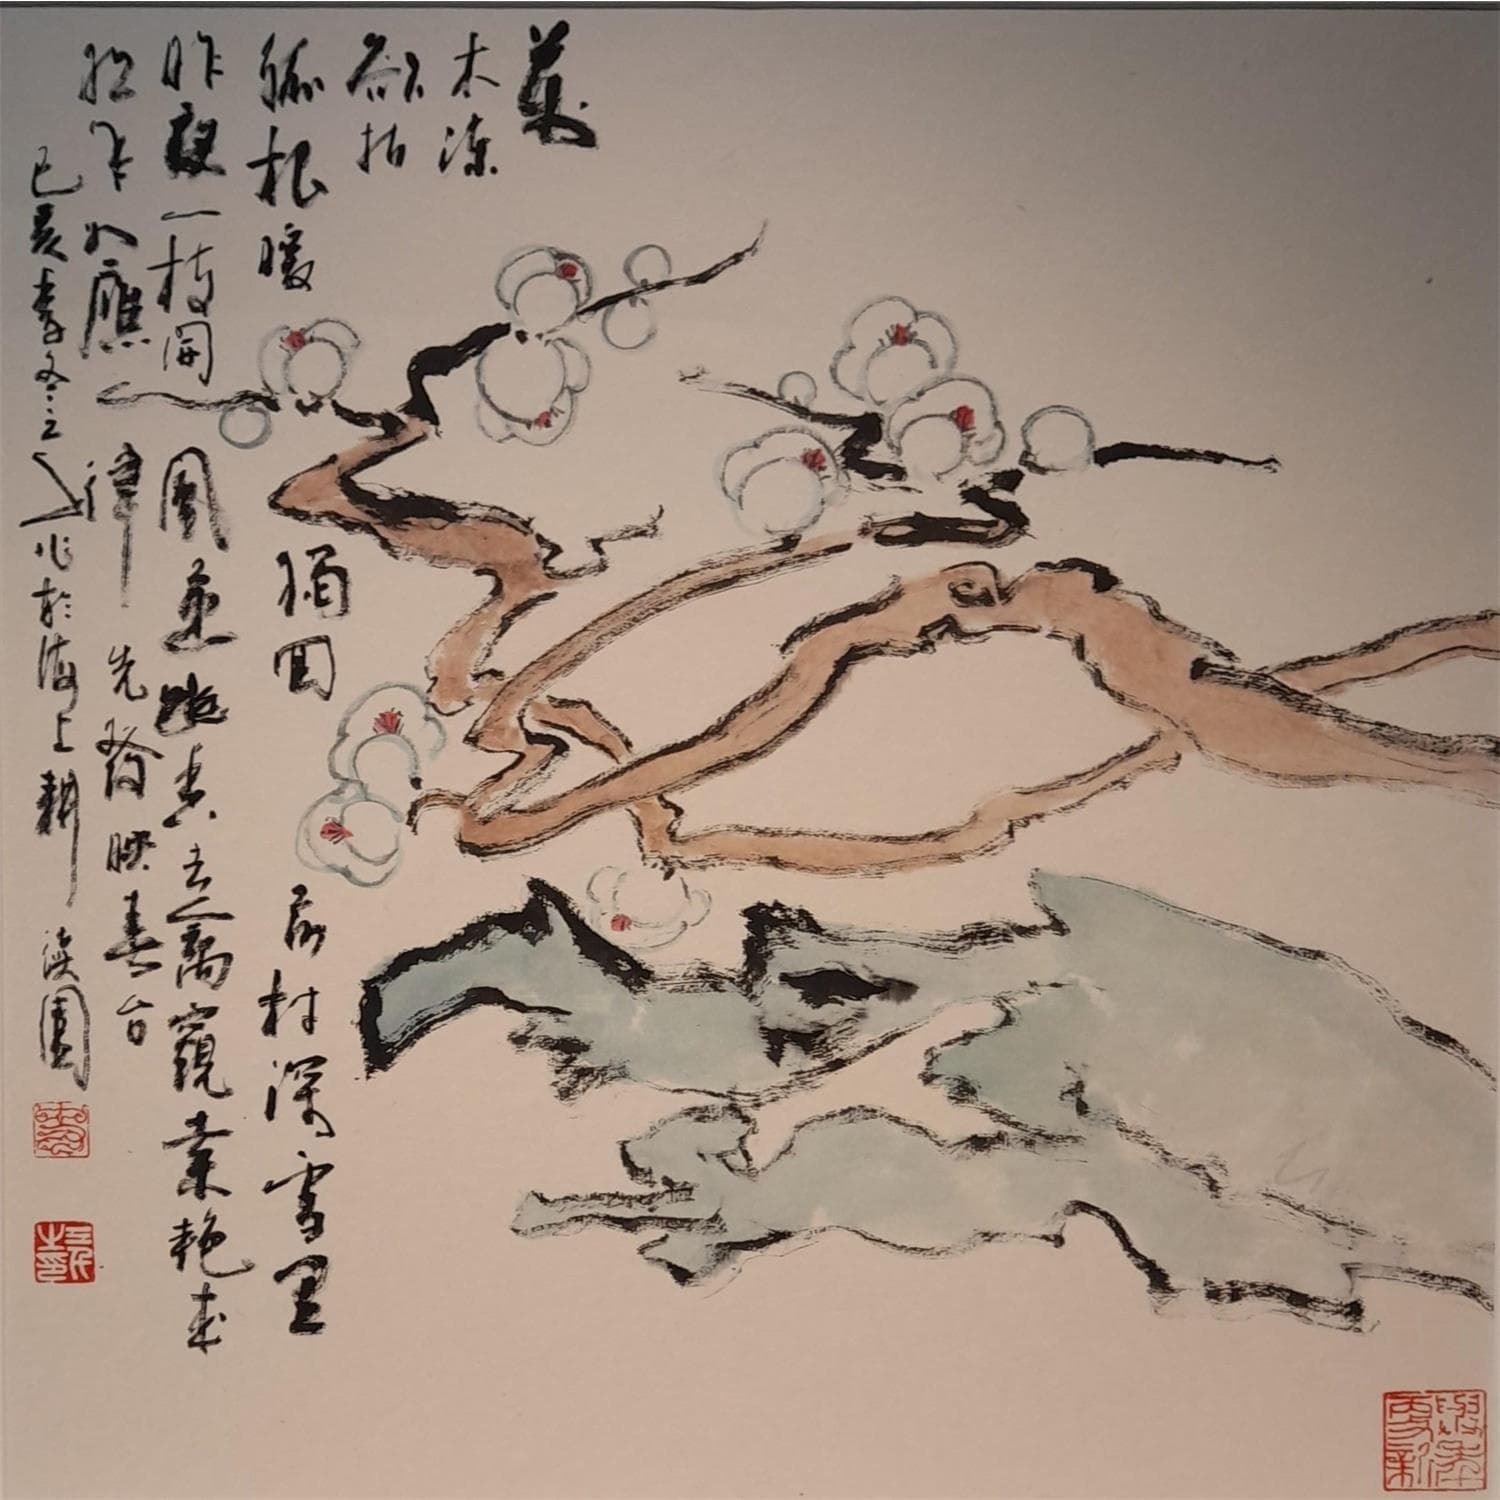 萬
木凍
欲折
孤根暖獨回前村深雪里
昨夜一枝開風遞幽香去禽窺素艷來
年如應律先發映春台
己亥季冬之作於海上耕園